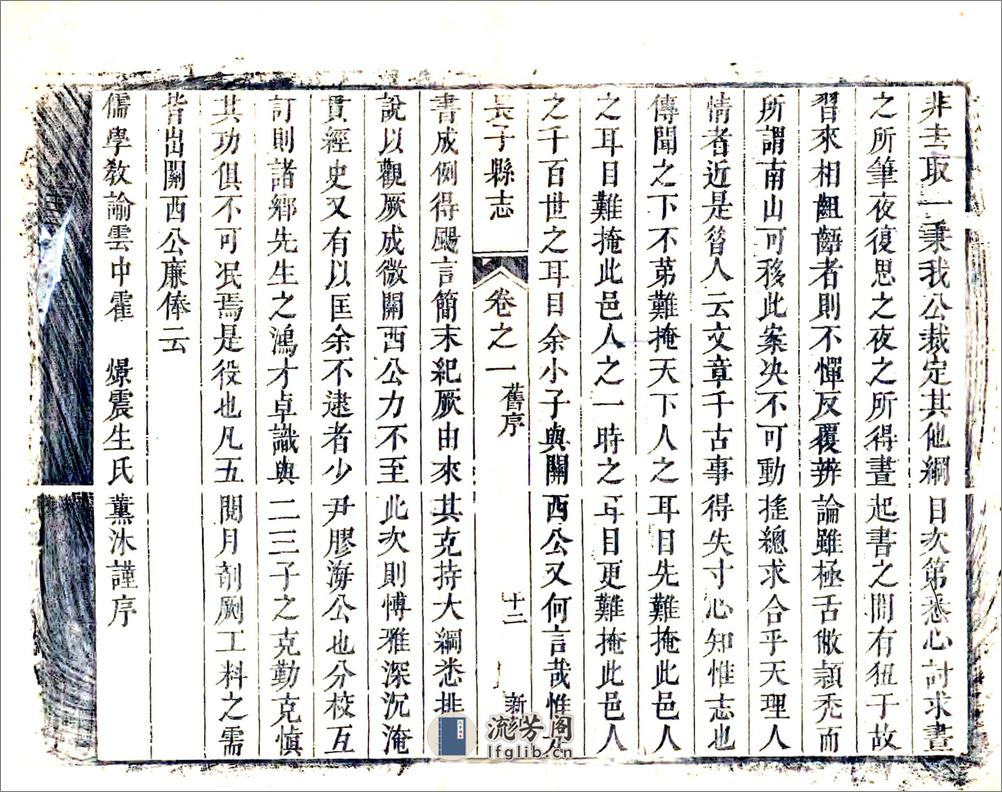 非去取一秉我公裁定其他綱目次第悉心討求晝
之所筆夜復思之夜之所得晝起書之間有狃于故
習來相齟齬者則不憚反覆辨論雖極舌敝穎禿而
所謂南山可移此案决不可動搖總求合乎天理人
情者近是昝人云文章千古事得失寸心知惟志也
傳聞之下不苐難掩天下人之耳目先難掩此邑人
之耳目難掩此邑人之一時之耳目更難掩此邑人
之千百世之耳目余小子與關西公又何言哉惟
長子縣志
卷之一
舊序
十二
新
書成例得颺言簡末紀厥由來其克持大綱悉排
說以觀厥成微關西公力不至此次則愽雅深沉淹
貫經史又有以匡余不逮者少尹膠海公也分校互
訂則諸鄉先生之鴻才卓識與二三子之克勤克慎
其功俱不可冺焉是役也凡五閱月剞劂工料之需
皆出關西公廉俸云
儒學敎諭雲中霍 燝震生氏薰沐謹序
流芳阁
lfglib.cn